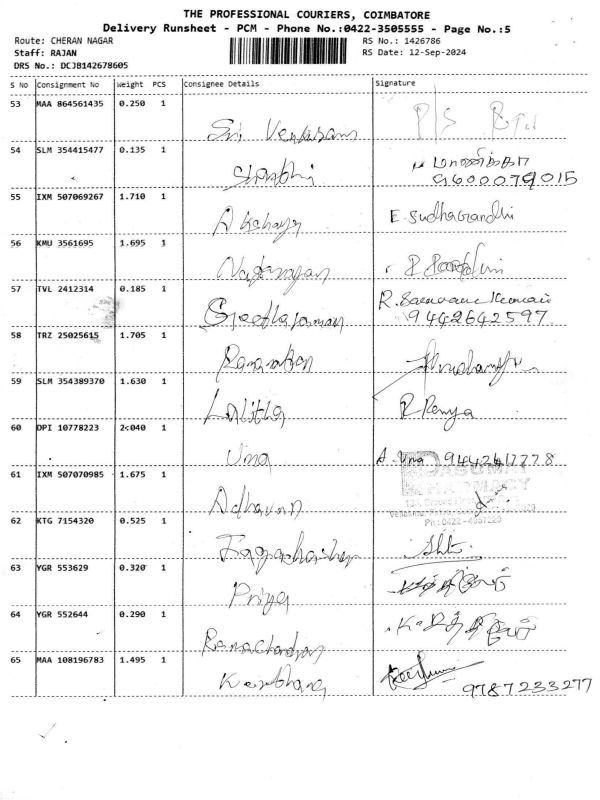 THE PROFESSIONAL COURIERS, COIMBATORE
Delivery Runsheet - PCM - Phone No.:0422-3505555 - Page No.:5
Route: CHERAN NAGAR RS No.: 1426786
Staff: RAJAN RS Date: 12-Sep-2024
DRS No.: DCJB142678605
S No Consignment No Weight PCS Consignee Details Signature
53 MAA 864561435 0.250 1
Sri
54 SLM 354415477 0.135 1
9600079015
55 IXM 507069267 1.710 1 E. Sudhagandhi
Akshaya
56 KMU 3561695 1.695 1
Nagarajan
57 TVL 2412314 0.185 1 R. Saravana Kumar
Geetharaman 9442642597
58 TRZ 25025615 1.705 1
59 SLM 354389370 1.630 1
Lalitha R Ramya
60 DPI 10778223 2.040 1
Uma A. Uma
61 IXM 507070985 1.675 1 PHARMACY
Adhavan
62 KTG 7154320 0.525 1 Ph: 0422 -
63 YGR 553629 0.320 1
Priya
64 YGR 552644 0.290 1
Ramachandran
65 MAA 108196783 1.495 1
9787233277